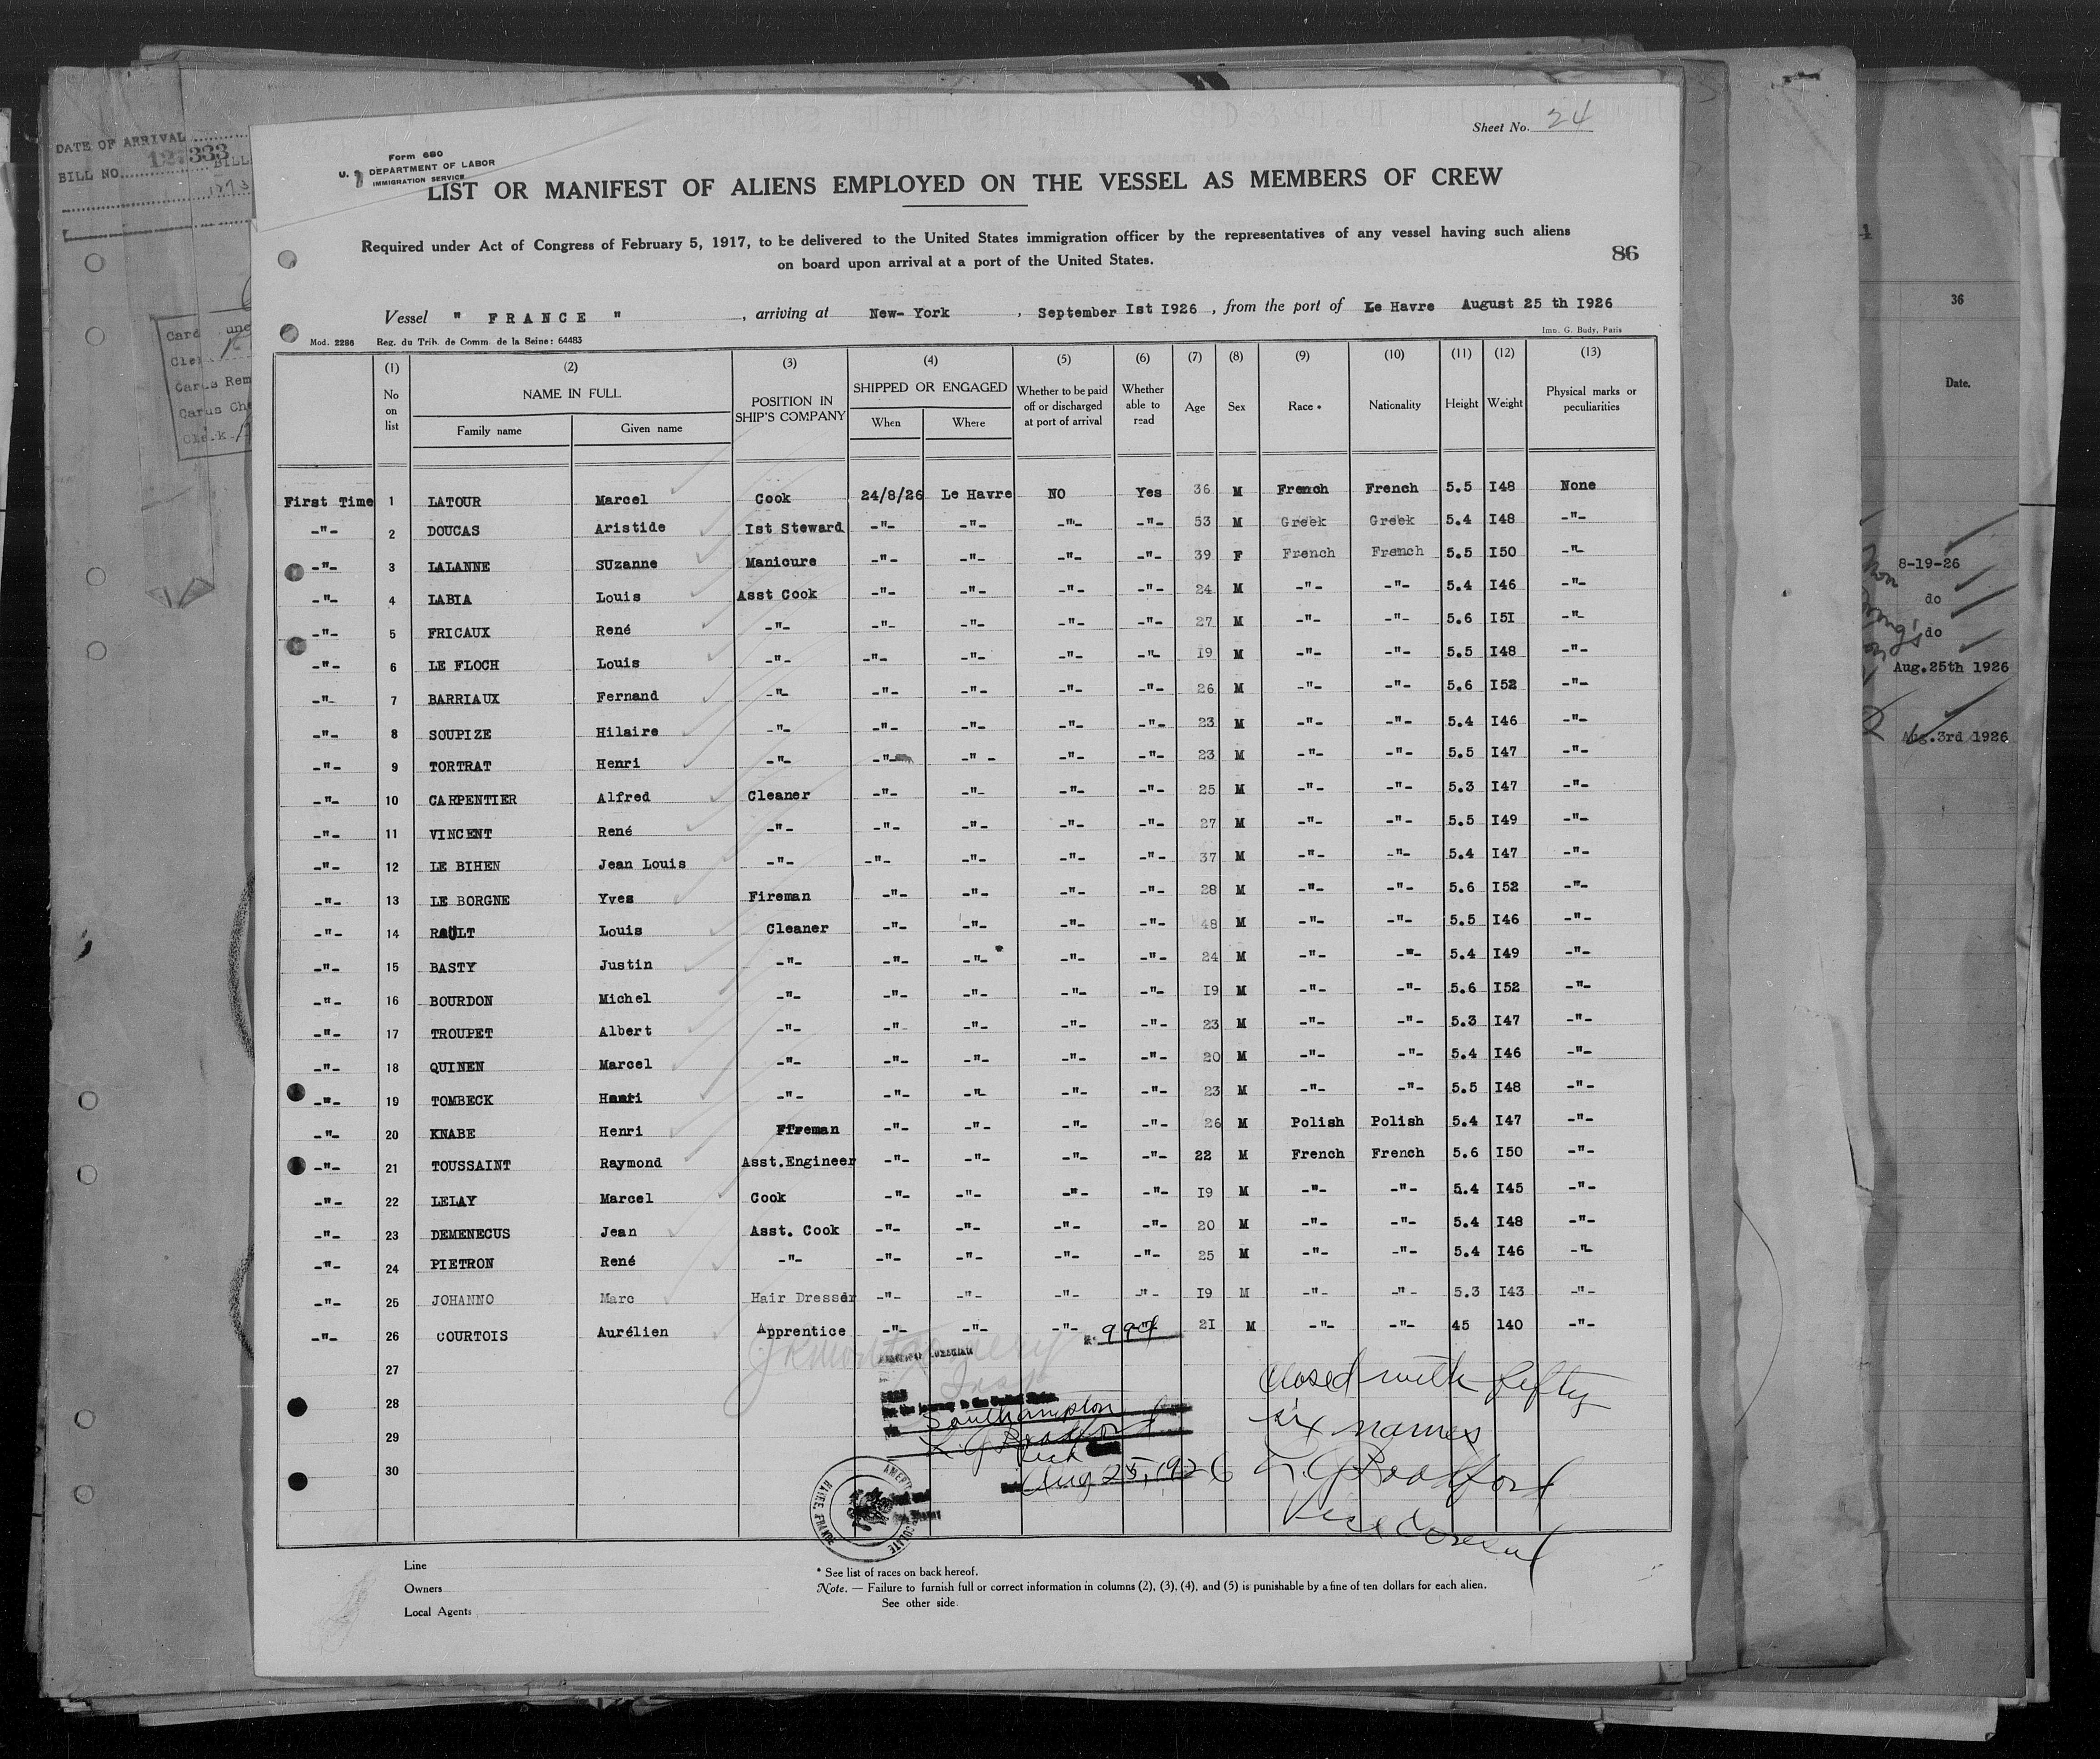 Sheet No. 24
Form 680
U. S. DEPARTMENT OF LABOR
IMMIGRATION SERVICE
LIST OR MANIFEST OF ALIENS EMPLOYED ON THE VESSEL AS MEMBERS OF CREW
Required under Act of Congress of February 5, 1917, to be delivered to the United States immigration officer by the representatives of any vessel having such aliens
on board upon arrival at a port of the United States.
86
Vessel " FRANCE " , arriving at New-York , September Ist I926 , from the port of Le Havre August 25 th I926
Mod. 2286 Reg. du Trib. de Comm. de la Seine: 64483 Imp. G. Budy, Paris
(1) (2) (3) (4) (5) (6) (7) (8) (9) (10) (11) (12) (13)
No on list NAME IN FULL Family name Given name POSITION IN SHIP'S COMPANY SHIPPED OR ENGAGED When Where Whether to be paid off or discharged at port of arrival Whether able to read Age Sex Race * Nationality Height Weight Physical marks or peculiarities
First Time 1 LATOUR Marcel Cook 24/8/26 Le Havre NO Yes 36 M French French 5.5 I48 None
-"- 2 DOUCAS Aristide Ist Steward -"- -"- -"- -"- 53 M Greek Greek 5.4 I48 -"-
-"- 3 LALANNE SUzanne Manicure -"- -"- -"- -"- 39 F French French 5.5 I50 -"-
-"- 4 LABIA Louis Asst Cook -"- -"- -"- -"- 24 M -"- -"- 5.4 I46 -"-
-"- 5 FRICAUX René -"- -"- -"- -"- -"- 27 M -"- -"- 5.6 I5I -"-
-"- 6 LE FLOCH Louis -"- -"- -"- -"- -"- I9 M -"- -"- 5.5 I48 -"-
-"- 7 BARRIAUX Fernand -"- -"- -"- -"- -"- 26 M -"- -"- 5.6 I52 -"-
-"- 8 SOUPIZE Hilaire -"- -"- -"- -"- -"- 23 M -"- -"- 5.4 I46 -"-
-"- 9 TORTRAT Henri -"- -"- -"- -"- -"- 23 M -"- -"- 5.5 I47 -"-
-"- 10 CARPENTIER Alfred Cleaner -"- -"- -"- -"- 25 M -"- -"- 5.3 I47 -"-
-"- 11 VINCENT René -"- -"- -"- -"- -"- 27 M -"- -"- 5.5 I49 -"-
-"- 12 LE BIHEN Jean Louis -"- -"- -"- -"- -"- 37 M -"- -"- 5.4 I47 -"-
-"- 13 LE BORGNE Yves Fireman -"- -"- -"- -"- 28 M -"- -"- 5.6 I52 -"-
-"- 14 RAULT Louis Cleaner -"- -"- -"- -"- 48 M -"- -"- 5.5 I46 -"-
-"- 15 BASTY Justin -"- -"- -"- -"- -"- 24 M -"- -"- 5.4 I49 -"-
-"- 16 BOURDON Michel -"- -"- -"- -"- -"- I9 M -"- -"- 5.6 I52 -"-
-"- 17 TROUPET Albert -"- -"- -"- -"- -"- 23 M -"- -"- 5.3 I47 -"-
-"- 18 QUINEN Marcel -"- -"- -"- -"- -"- 20 M -"- -"- 5.4 I46 -"-
-"- 19 TOMBECK Henri -"- -"- -"- -"- -"- 23 M -"- -"- 5.5 I48 -"-
-"- 20 KNABE Henri Fireman -"- -"- -"- -"- 26 M Polish Polish 5.4 I47 -"-
-"- 21 TOUSSAINT Raymond Asst.Engineer -"- -"- -"- -"- 22 M French French 5.6 I50 -"-
-"- 22 LELAY Marcel Cook -"- -"- -"- -"- I9 M -"- -"- 5.4 I45 -"-
-"- 23 DEMENECUS Jean Asst. Cook -"- -"- -"- -"- 20 M -"- -"- 5.4 I48 -"-
-"- 24 PIETRON René -"- -"- -"- -"- -"- 25 M -"- -"- 5.4 I46 -"-
-"- 25 JOHANNO Marc Hair Dresser -"- -"- -"- -"- I9 M -"- -"- 5.3 I43 -"-
-"- 26 COURTOIS Aurélien Apprentice -"- -"- -"- 2I M -"- -"- 45 140 -"-
27
28
29
30
JRMontgomery
Insp
for the journey to the United States
via Southampton
Vice
Date Aug 25, 1926
AMERICAN CONSULATE
HAVRE, FRANCE
closed with fifty
six names
Vice Consul
Line
Owners
Local Agents
* See list of races on back hereof.
Note. — Failure to furnish full or correct information in columns (2), (3), (4), and (5) is punishable by a fine of ten dollars for each alien.
See other side.
DATE OF ARRIVAL
BILL NO.
127333
36
Date.
8-19-26
do
do
Aug.25th 1926
Aug.3rd 1926